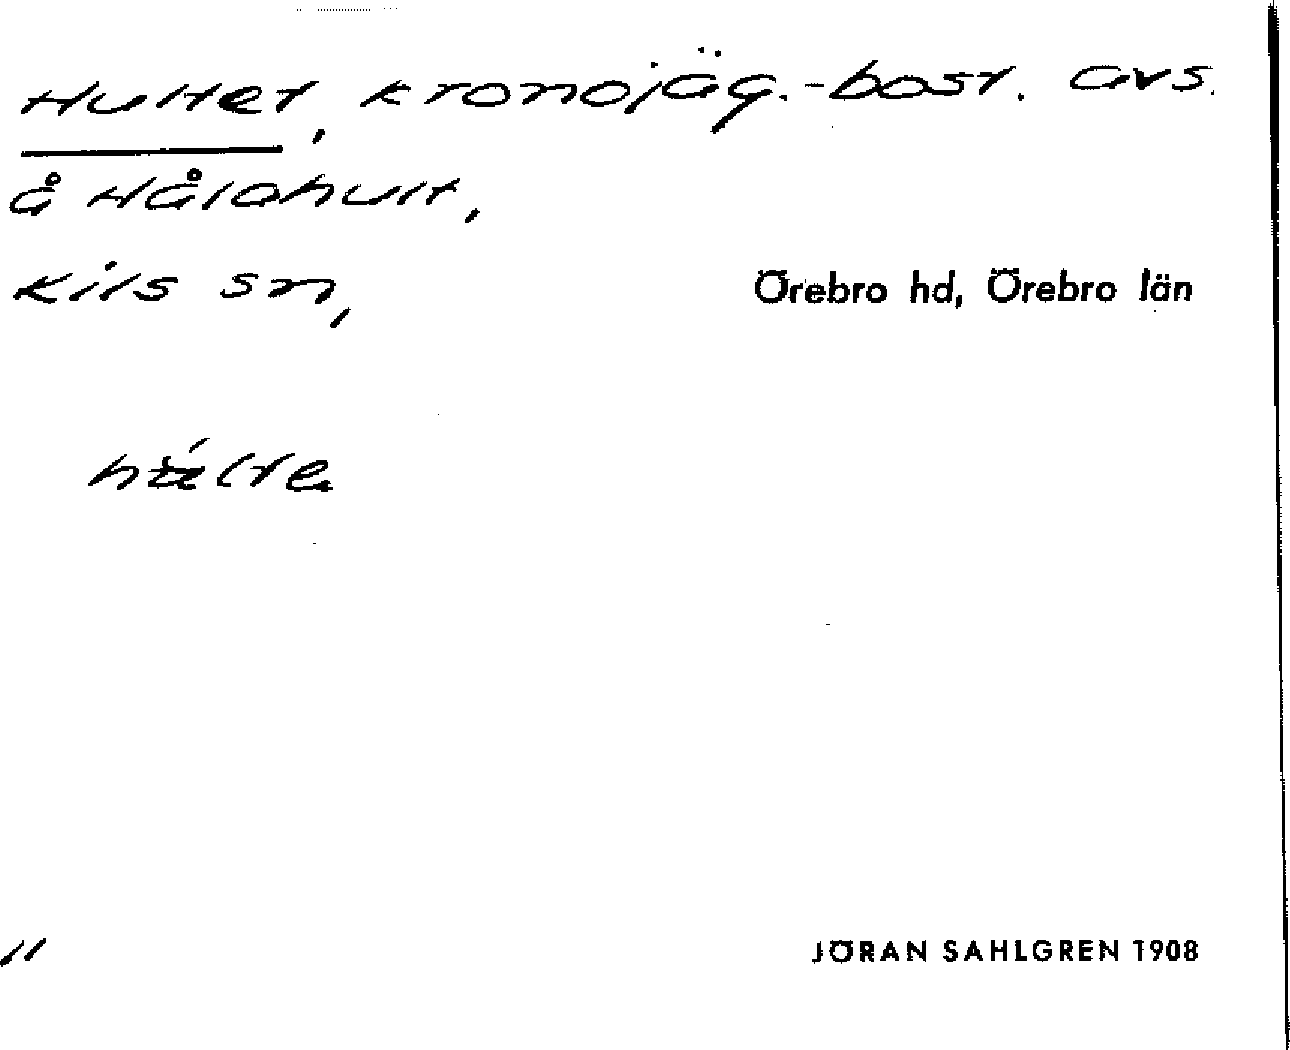 Hultet, kronojäg.-bost. avs.
å Hålahult,
Kils sn,
Örebro hd, Örebro län
11
JÖRAN SAHLGREN 1908